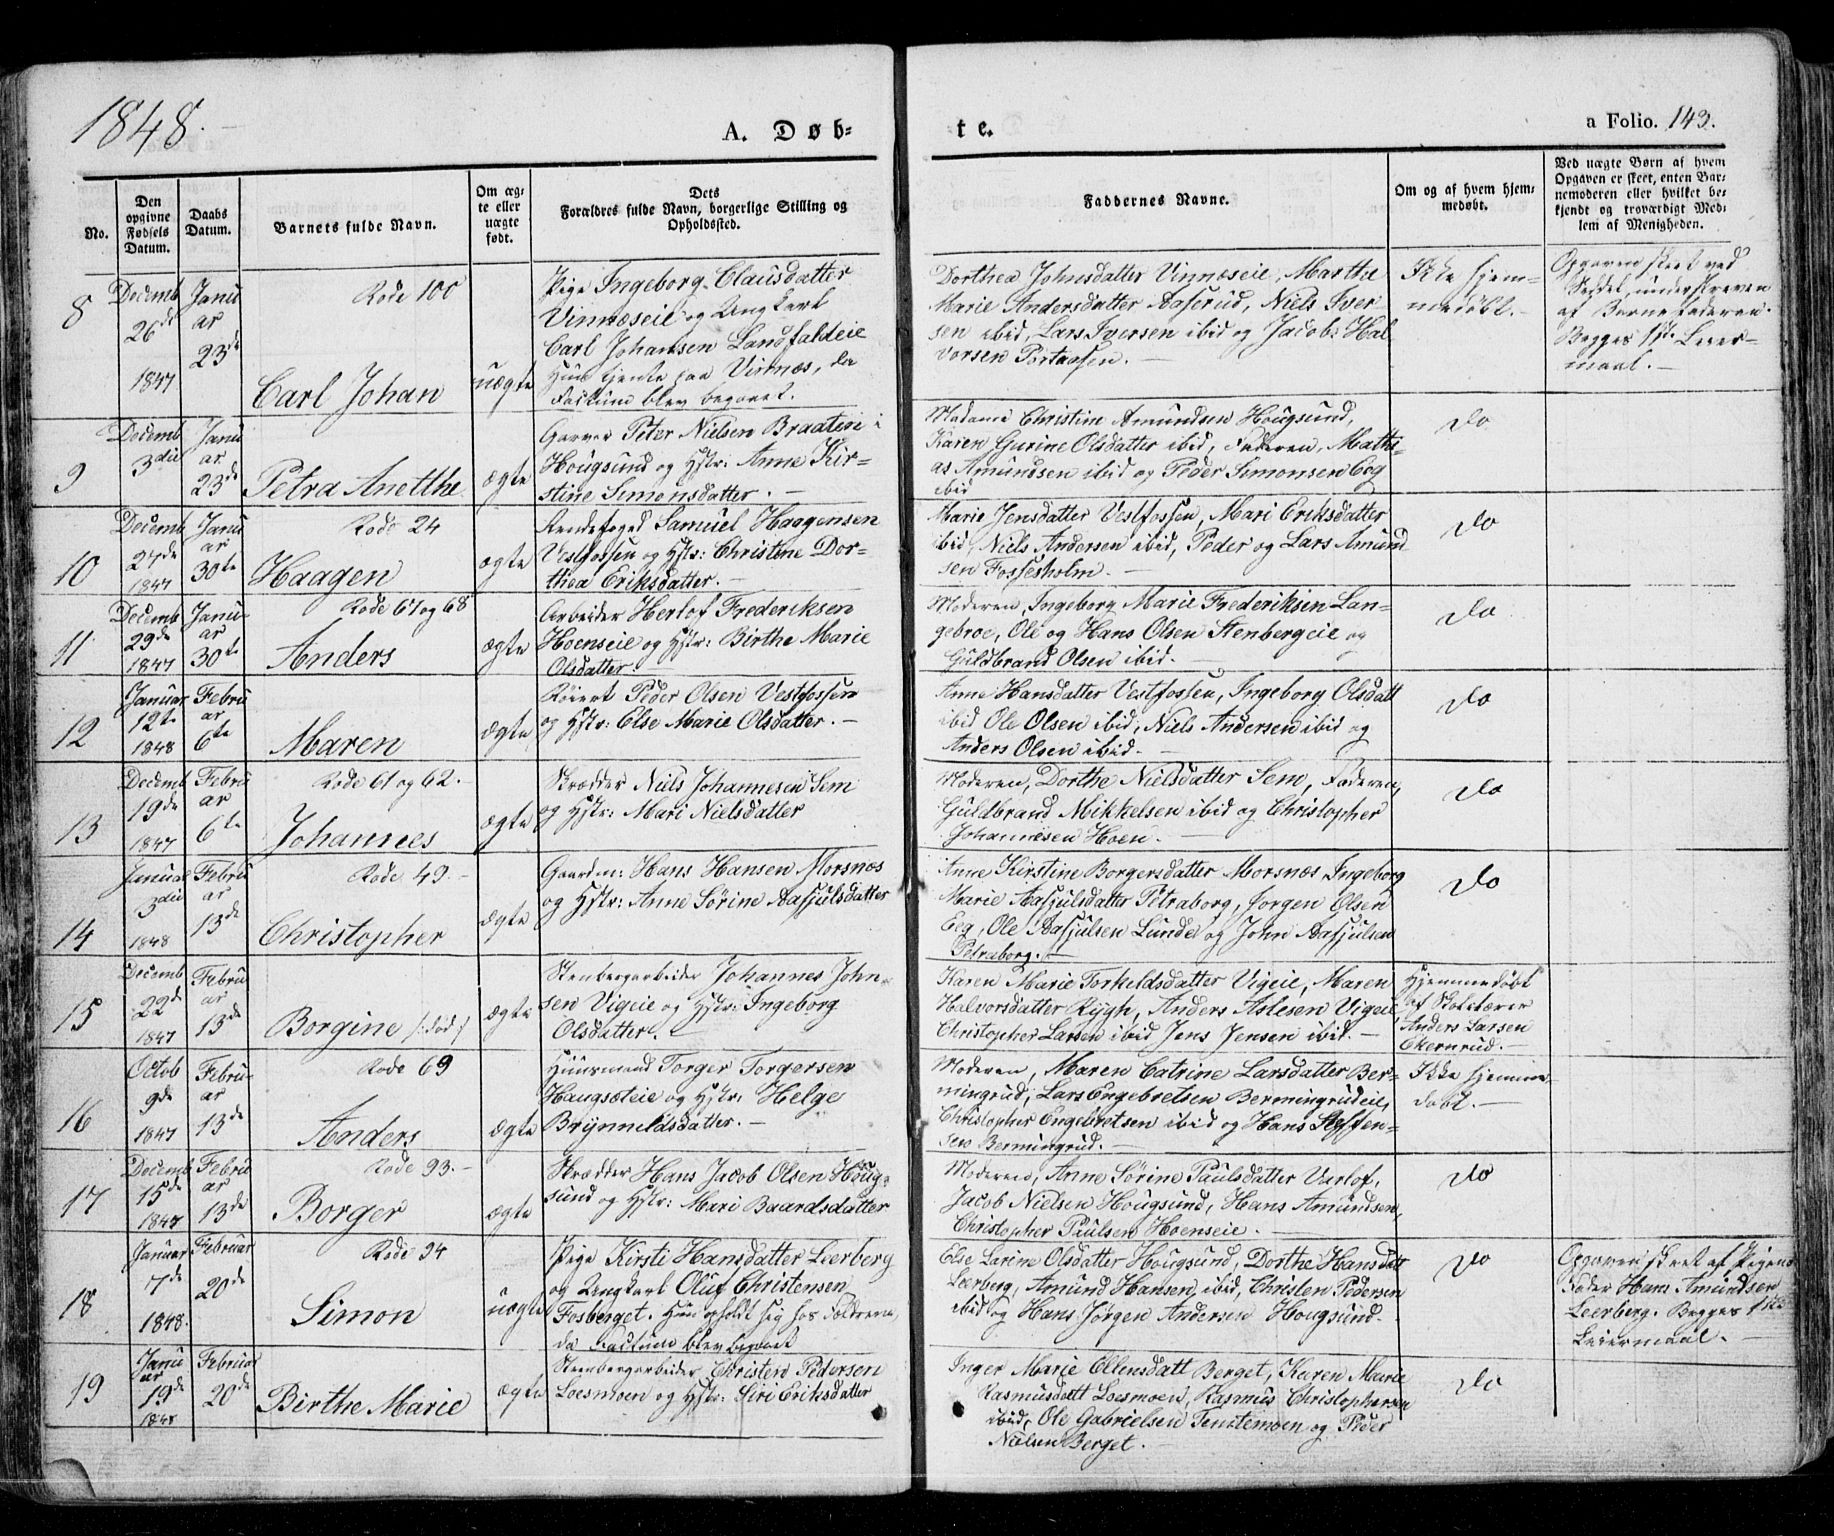 1848.
A. Døb-
te.
a Folio. 143.
No.
Den opgivne Fødsels Datum.
Daabs Datum.
Barnets fulde Navn.
Om ægte eller uægte født.
Dets Forældres fulde Navn, borgerlige Stilling og Opholdssted.
Faddernes Navne.
Om og af hvem hjemmedøbt.
Ved uægte Børn af hvem Opgaven er skeet, enten Barnemoderen eller hvilket bekjendt og troværdigt Medlem af Menigheden.
8
Decemb
26de
1847
Janu
ar
23de
Rode 100
Carl Johan
uægte
Pige Ingeborg Clausdatter
Vinnæseie og Ungkarl
Carl Johansen Landfaldeie
Hun tjente paa Vinnæs, da
Factum blev begaaet.
Dorthea Johnsdatter Vinnæseie, Marthe
Marie Andersdatter Aaserud, Niels Iver
sen ibid, Lars Iversen ibid og Jacob Hal
vorsen Portaasen.
Ikke hjem-
medøbt.
Opgaven skeet ved
Seddel, underskreven
af Barnefaderen.
Begges 1ste Leier-
maal.
9
Decemb
3die
Janu
ar
23de
Petra Anetthe
ægte
Garver Peter Nielsen Braaten i
Hougsund og Hstr: Anne Kir-
stine Simonsdatter.
Madame Christin Amundsen Hougsund,
Karen Gurine Olsdatter ibid, Faderen, Mathi-
as Amundsen ibid og Peder Simonsen Eeg
ibid
Do
10
Decemb
27de
1847
Janu
ar
30te
Rode 24
Haagen
ægte
Rendefoged Samuel Haagensen
Vestfossen og Hstr: Christine Dor-
thea Eriksdatter.
Marie Jensdatter Vestfossen, Mari Eriksdatter
ibid, Niels Andersen ibid, Peder og Lars Amund
sen Fossesholm.
Do
11
Decemb
29de
1847
Janu-
ar
30te
Rode 67 og 68
Anders
ægte
Arbeider Herlof Frederiksen
Hoenseie og Hstr: Birthe Marie
Olsdatter
Moderen, Ingeborg Marie Frederiksen Lan-
gebroe, Ole og Hans Olsen Stenbergeie og
Guldbrand Olsen ibid.
Do
12
Januar
12te
1848
Febru
ar
6te
Maren
ægte
Peder Olsen Vestfossen
og Hstr: Else Marie Olsdatter.
Anne Hansdatter Vestfossen, Ingeborg Olsdatt
ibid Ole Olsen ibid, Niels Andersen ibid og
Anders Olsen ibid.
Do
13
Decemb
19de
1847
Febru
ar
6te
Rode 61 og 62.
Johannes
ægte
Skrædder Niels Johannesen Sem
og Hstr: Mari Nielsdatter
Moderen, Dorthe Nielsdatter Sem, Faderen,
Guldbrand Mikkelsen ibid og Christopher
Johannesen Hoen.
Do
14
Januar
3die
1848
Febru
ar
13de
Rode 49.
Christopher
ægte
Gaardm: Hans Hansen Morsnæs
og Hstr: Anne Sørine Aasjulsdatter
Anne Kirstine Borgersdatter Morsnæs Ingeborg
Marie Aasjulsdatter Petraborg, Jørgen Olsen
Eeg, Ole Aasjulsen Lunde og John Aasjulsen
Petraborg.
Do
15
Decemb
22de
1847
Febru
ar
13de
Borgine /: død :/
ægte
Stenbergarbeider Johannes John-
sen Vigeie og Hstr: Ingeborg
Olsdatter.
Karen Marie Torkeldsdatter Vigeie, Maren
Halvorsdatter Rygh, Anders Aslesen Vigeie,
Christopher Larsen ibid Jens Jensen ibid.
Hjemmedøbt
af Skolelærer
Anders Larsen
Ekernrud.
16
Octob
9de
1847
Febru-
ar
13de
Rode 69
Anders
ægte
Huusmand Torger Torgersen
Haugsæteie og Hstr: Helge
Brynnildsdatter.
Moderen, Maren Catrine Larsdatter Ber-
mingrud, Lars Engebretsen Bermingrudeie,
Christopher Engebretsen ibid og Hans Steffen-
sen Bermingrud.
Ikke hjemme-
døbt.
17
Decemb
15de
1847
Febru
ar
13de
Rode 93.
Borger
ægte
Skrædder Hans Jacob Olsen Houg-
sund og Hstr: Mari Baardsdatter
Moderen, Anne Sørine Paulsdatter Varlof,
Jacob Nielsen Hougsund, Hans Amundsen,
Christopher Paulsen Hoenseie.
Do
18
Januar
7de
1848.
Februar
20de
Rode 94
Simon
uægte
Pige Kirsti Hansdatter Leerberg
og Ungkarl Oluf Christensen
Fosberget. Hun opholdt sig hos Forældrene,
da Factum blev begaaet
Else Larine Olsdatter Hougsund, Dorthe Hansdatt
Leerberg, Amund Hansen ibid, Christen Pedersen
ibid og Hans Jørgen Andersen Hougsund.
Do
Opgaven skeet af Pigens
Fader Hans Amundsen
Leerberg. Begges 1ste
Leiermaal.
19
Janu
ar
19de
1848
Februar
20de
Birthe Marie
ægte
Steenbergarbeider Christen Pedersen
Loesmoen og Hstr: Siri Eriksdatter
Inger Marie Ellensdatt Berget, Karen Marie
Rasmusdatt Loesmoen, Rasmus Christophersen
ibid, Ole Gabrielsen Teustemoen og Peder
Nielsen Berget.
Do